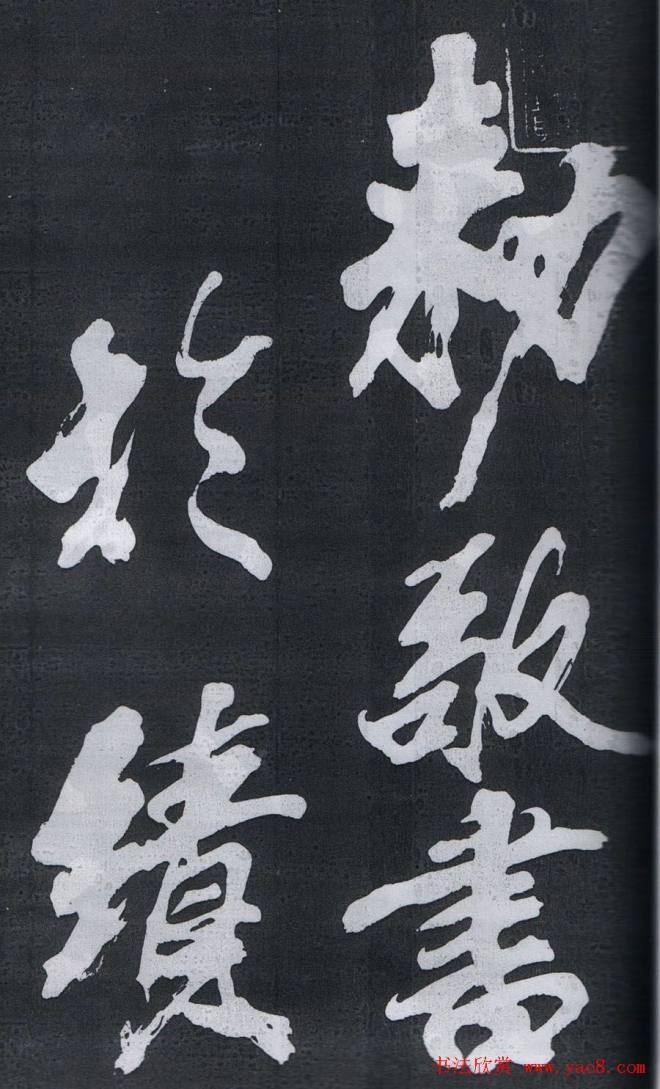 敢書
於績
书法欣赏 www.yac8.com